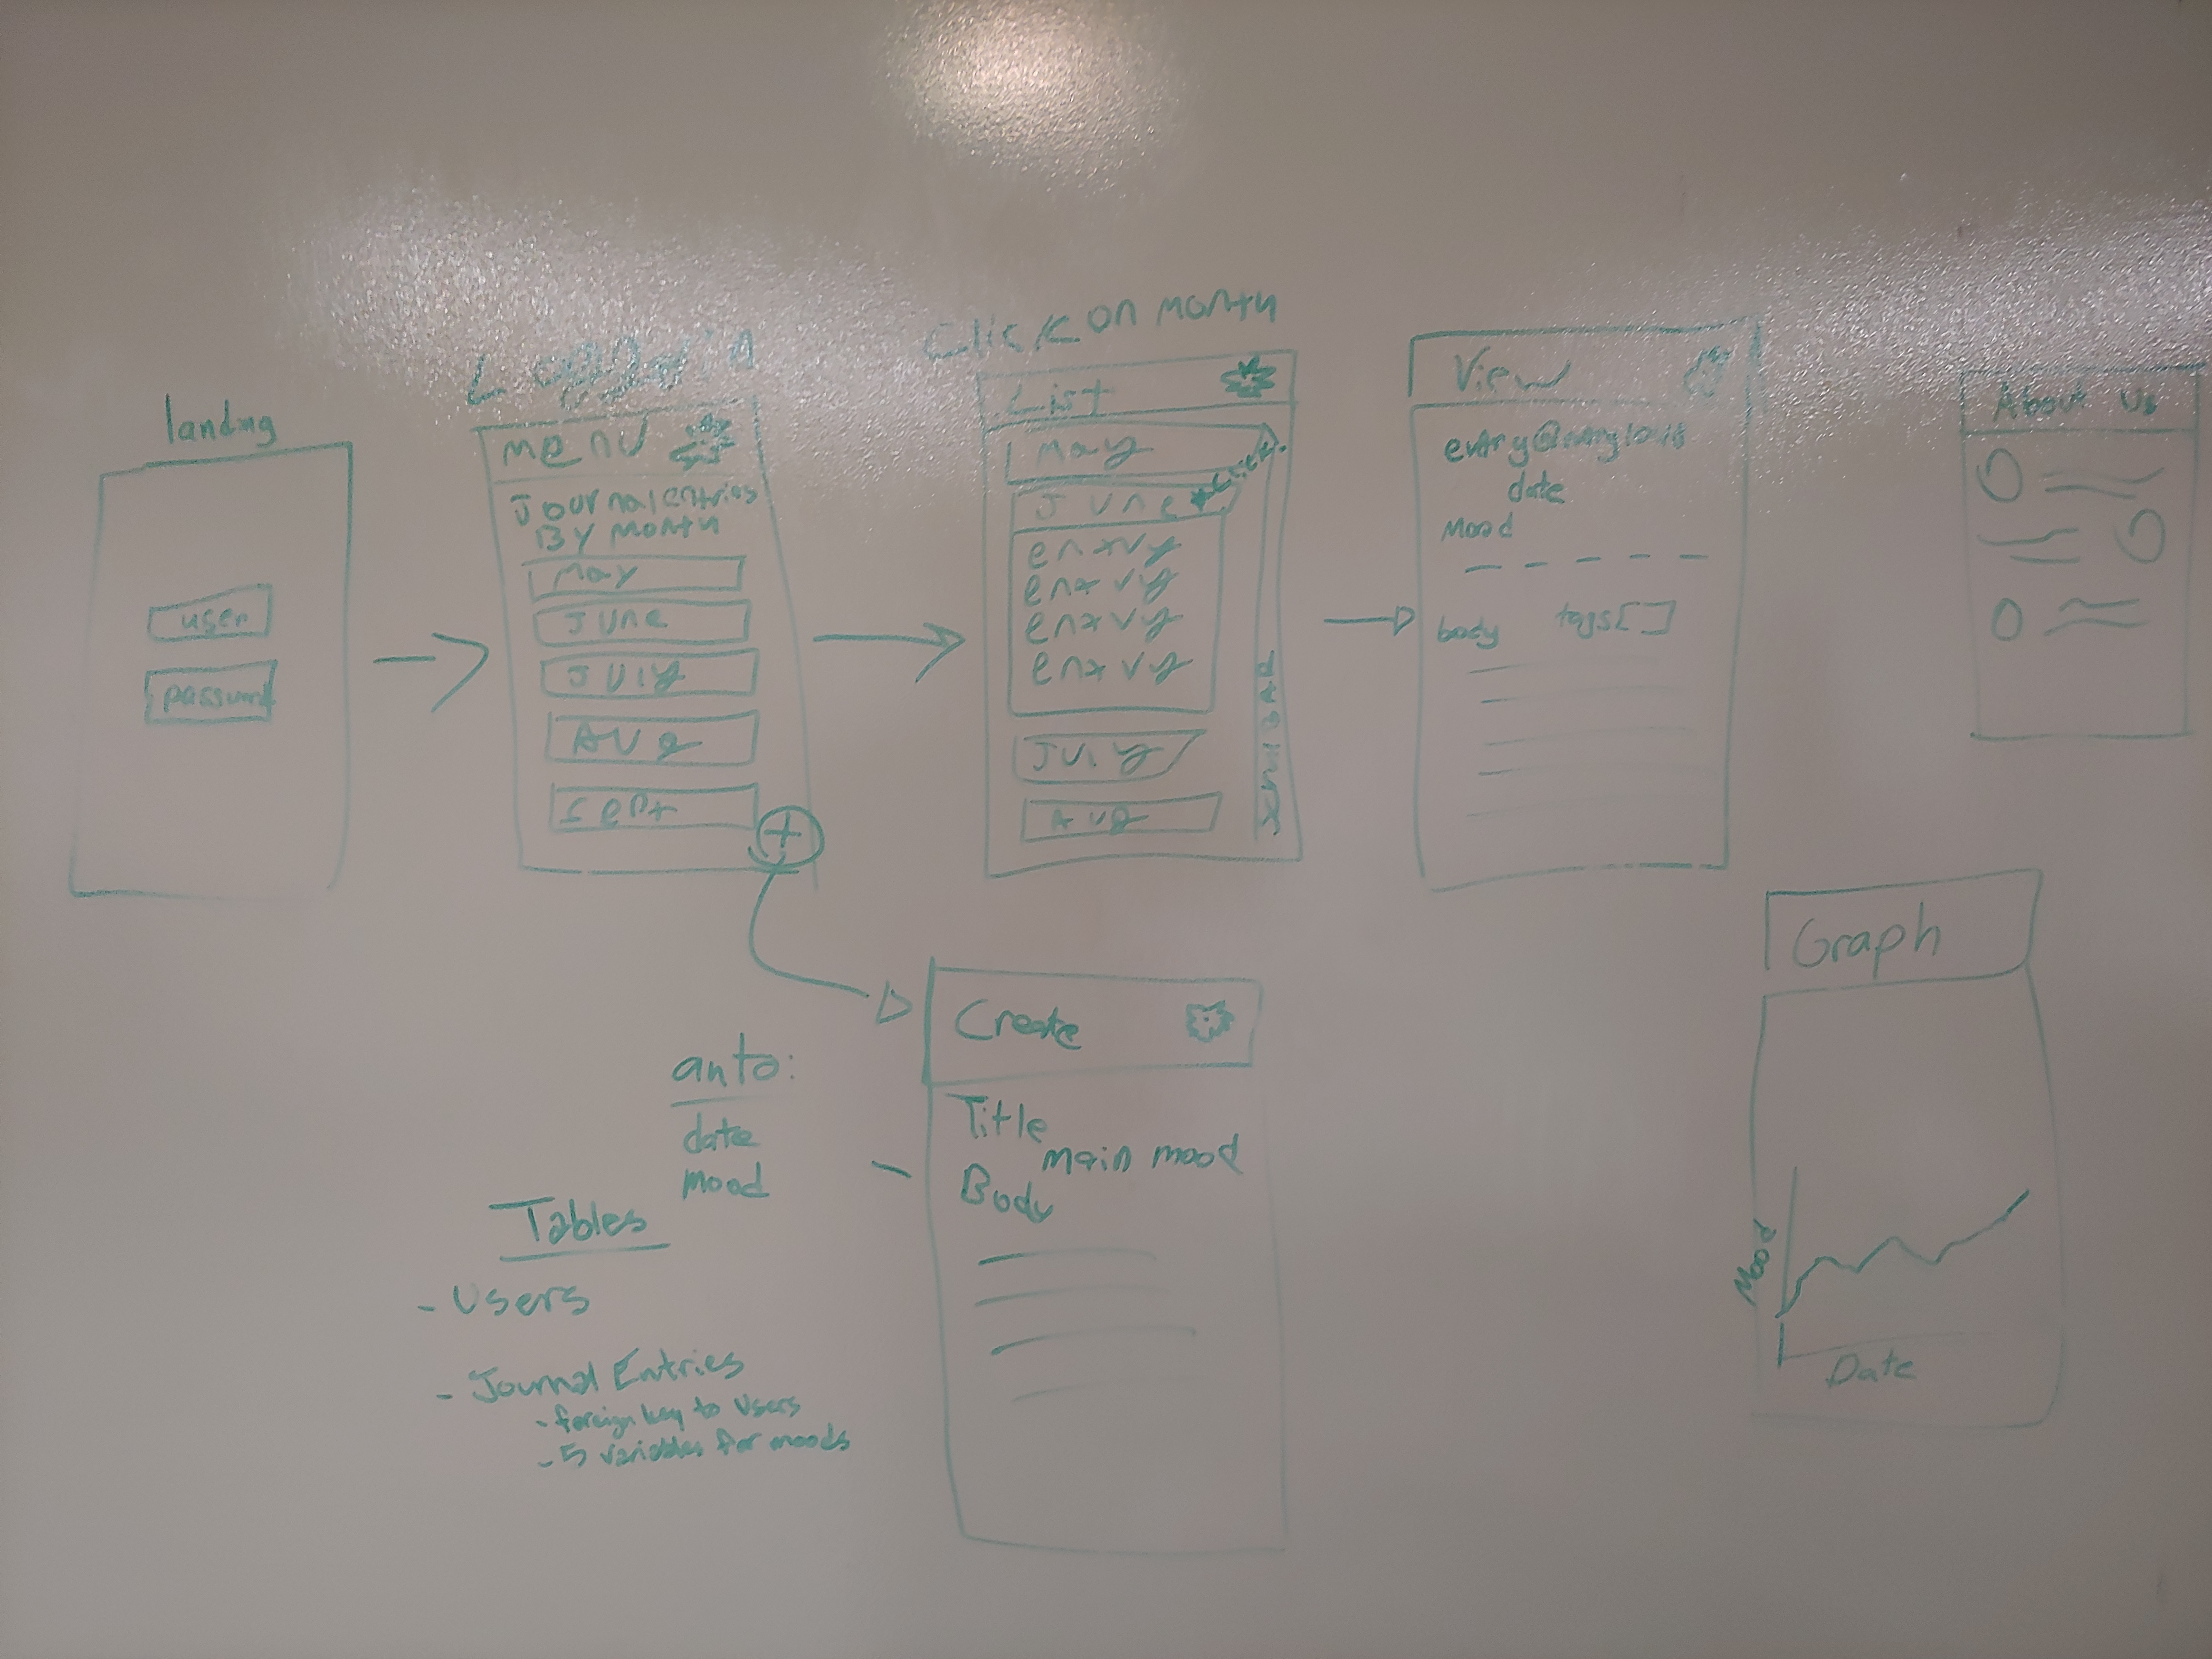 landing
user
Loggedin
menu
Journal entries
By month
May
June
July
Aug
Sept
+
Click on month
List
May
June
entry
entry
entry
entry
July
Aug
scroll Bar
View
date
Mood
body tags[ ]
About Us
auto:
date
mood
Create
Title
main mood
Body
Tables
- Users
- Journal Entries
- foreign key to users
- 5 variables for moods
Graph
Mood
Date